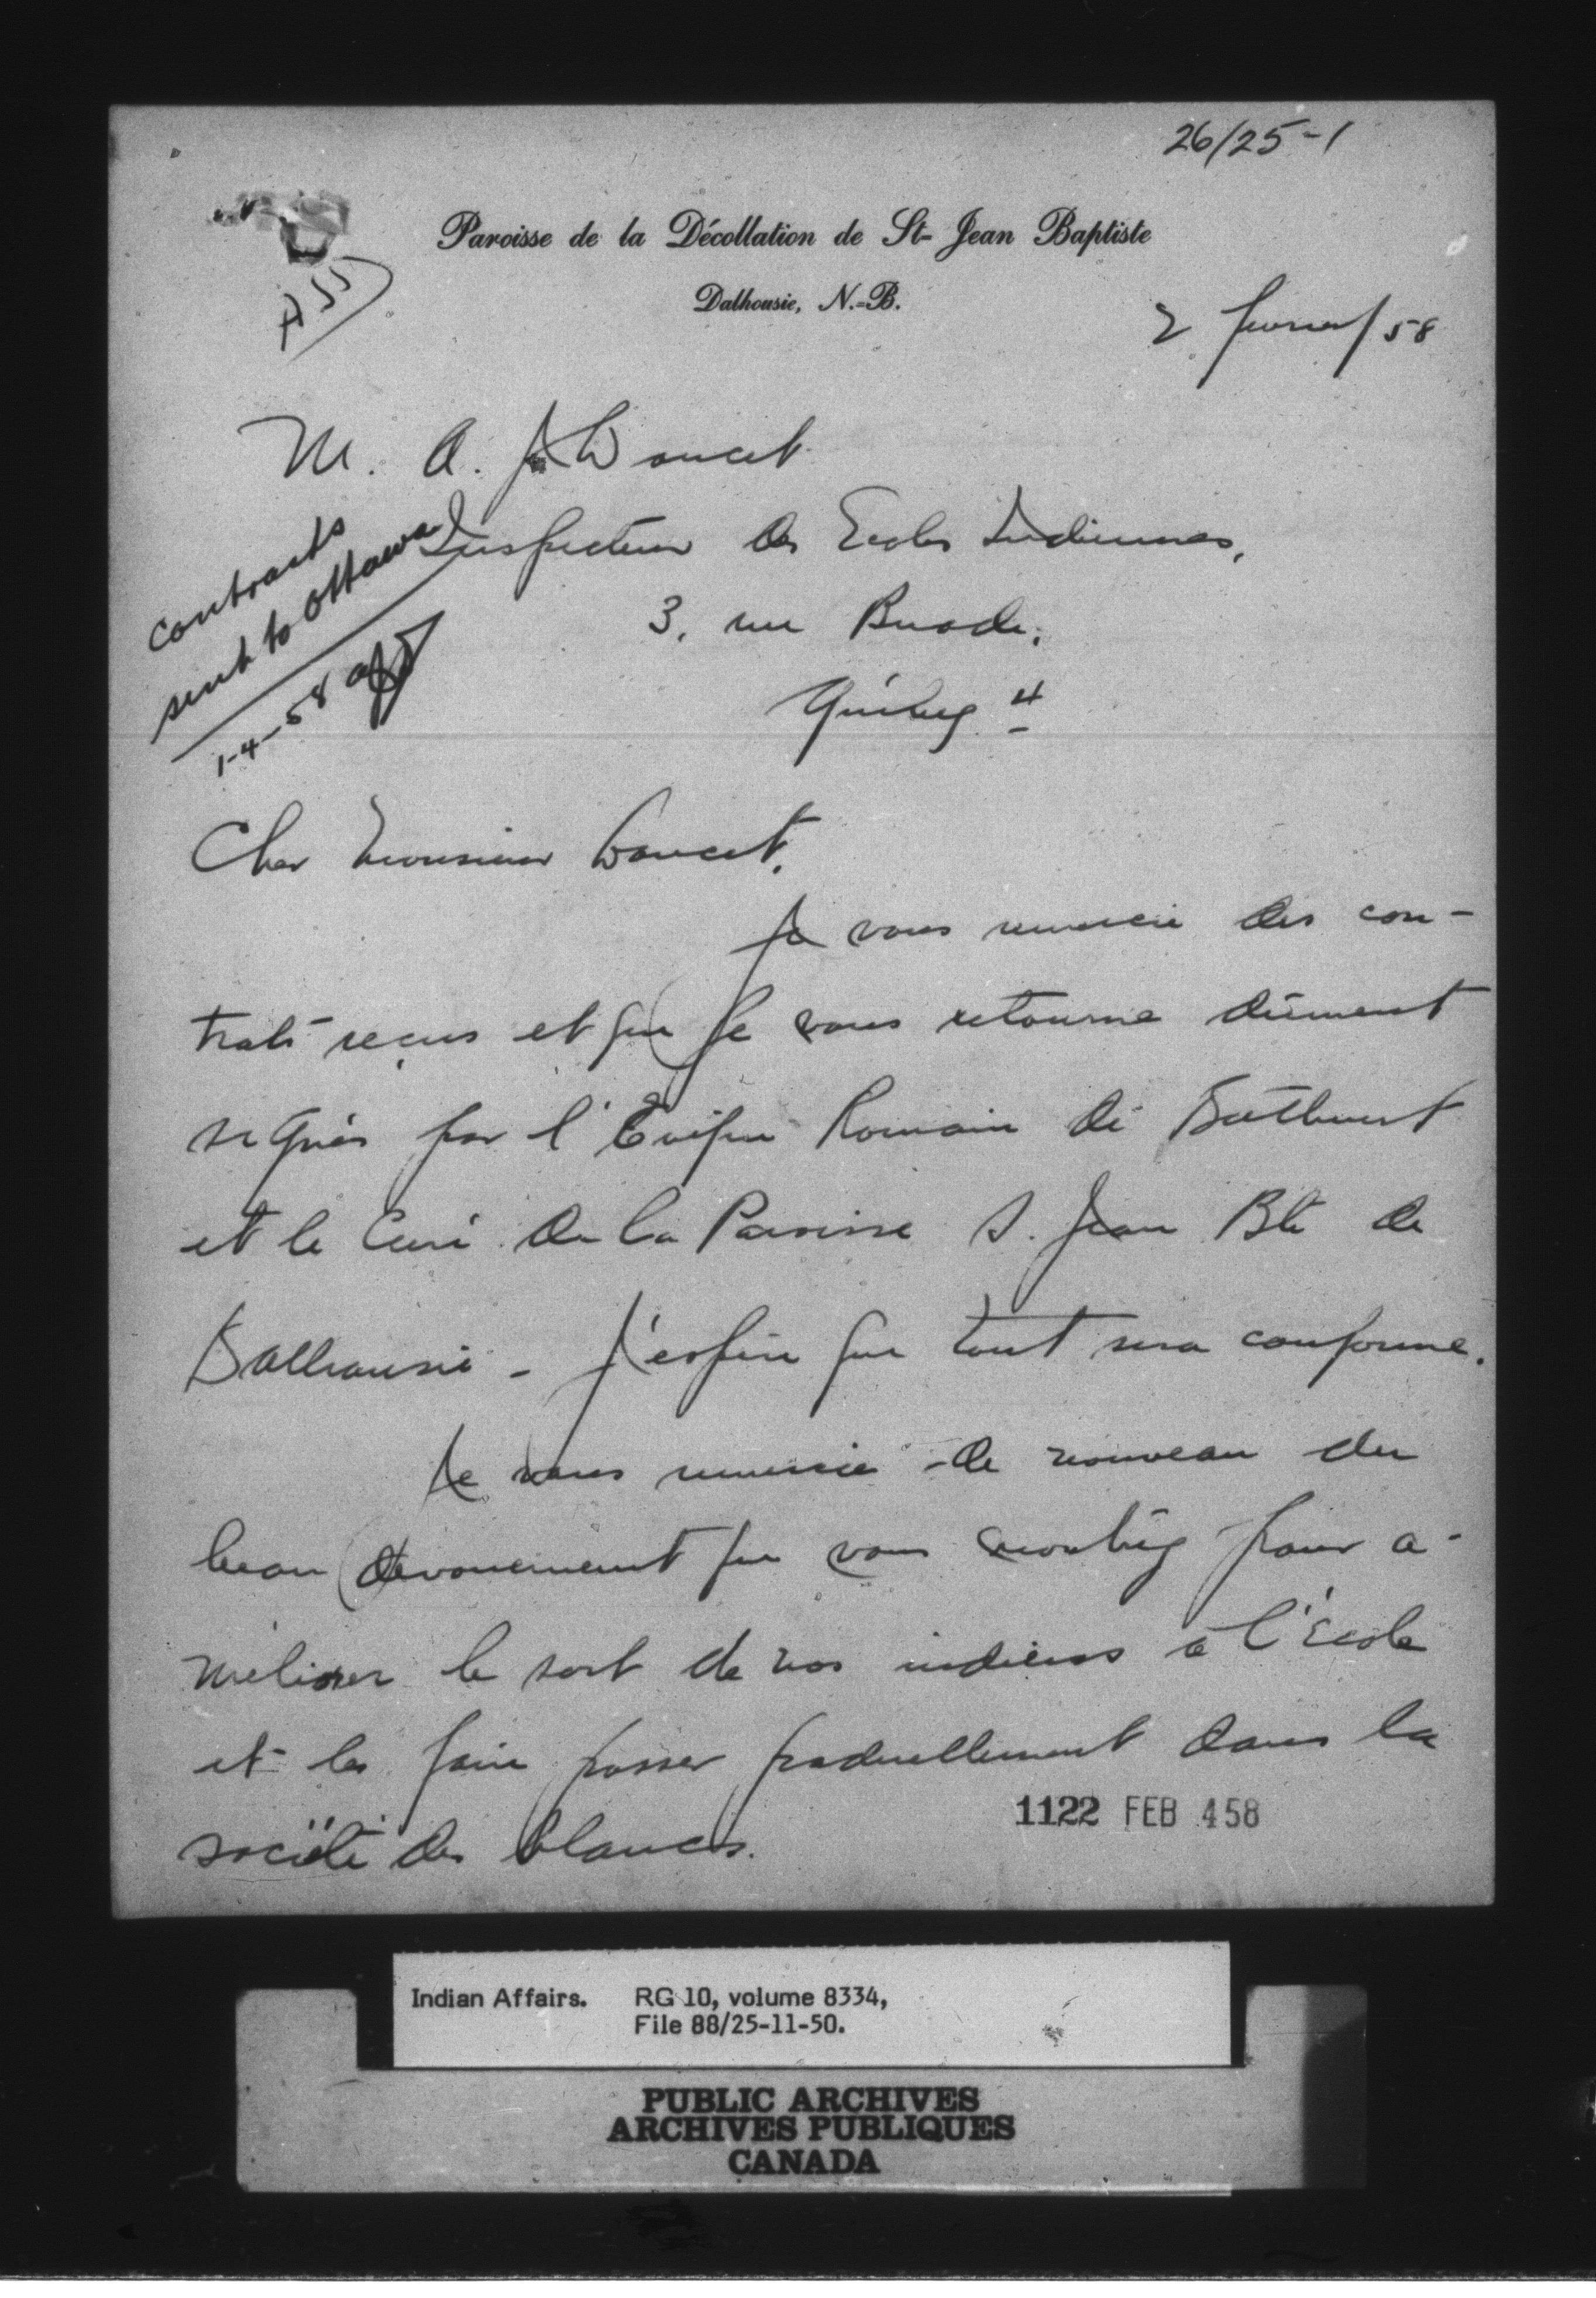 26/25-1
Paroisse de la Décollation de St-Jean Baptiste
Dalhousie, N.-B.
2 février/58
M. A. J. Doucet
Inspecteur des Ecoles Indiennes,
3, rue Buade,
Québec 4
contracts
sent to Ottawa
1-4-58
Cher Monsieur Doucet,
Je vous remercie des con-
trats reçus et que je vous retourne dûment
signés par l'Evêque Romain de Bathurst
et le Curé de la Paroisse S. Jean Bte de
Dalhousie - J'espère que tout sera conforme.
Je vous remercie de nouveau du
beau dévouement que vous montrez pour a-
méliorer le sort de nos indiens à l'Ecole
et les faire passer graduellement dans la
société des blancs.
1122 FEB 4 58
Indian Affairs. RG 10, volume 8334,
File 88/25-11-50.
PUBLIC ARCHIVES
ARCHIVES PUBLIQUES
CANADA